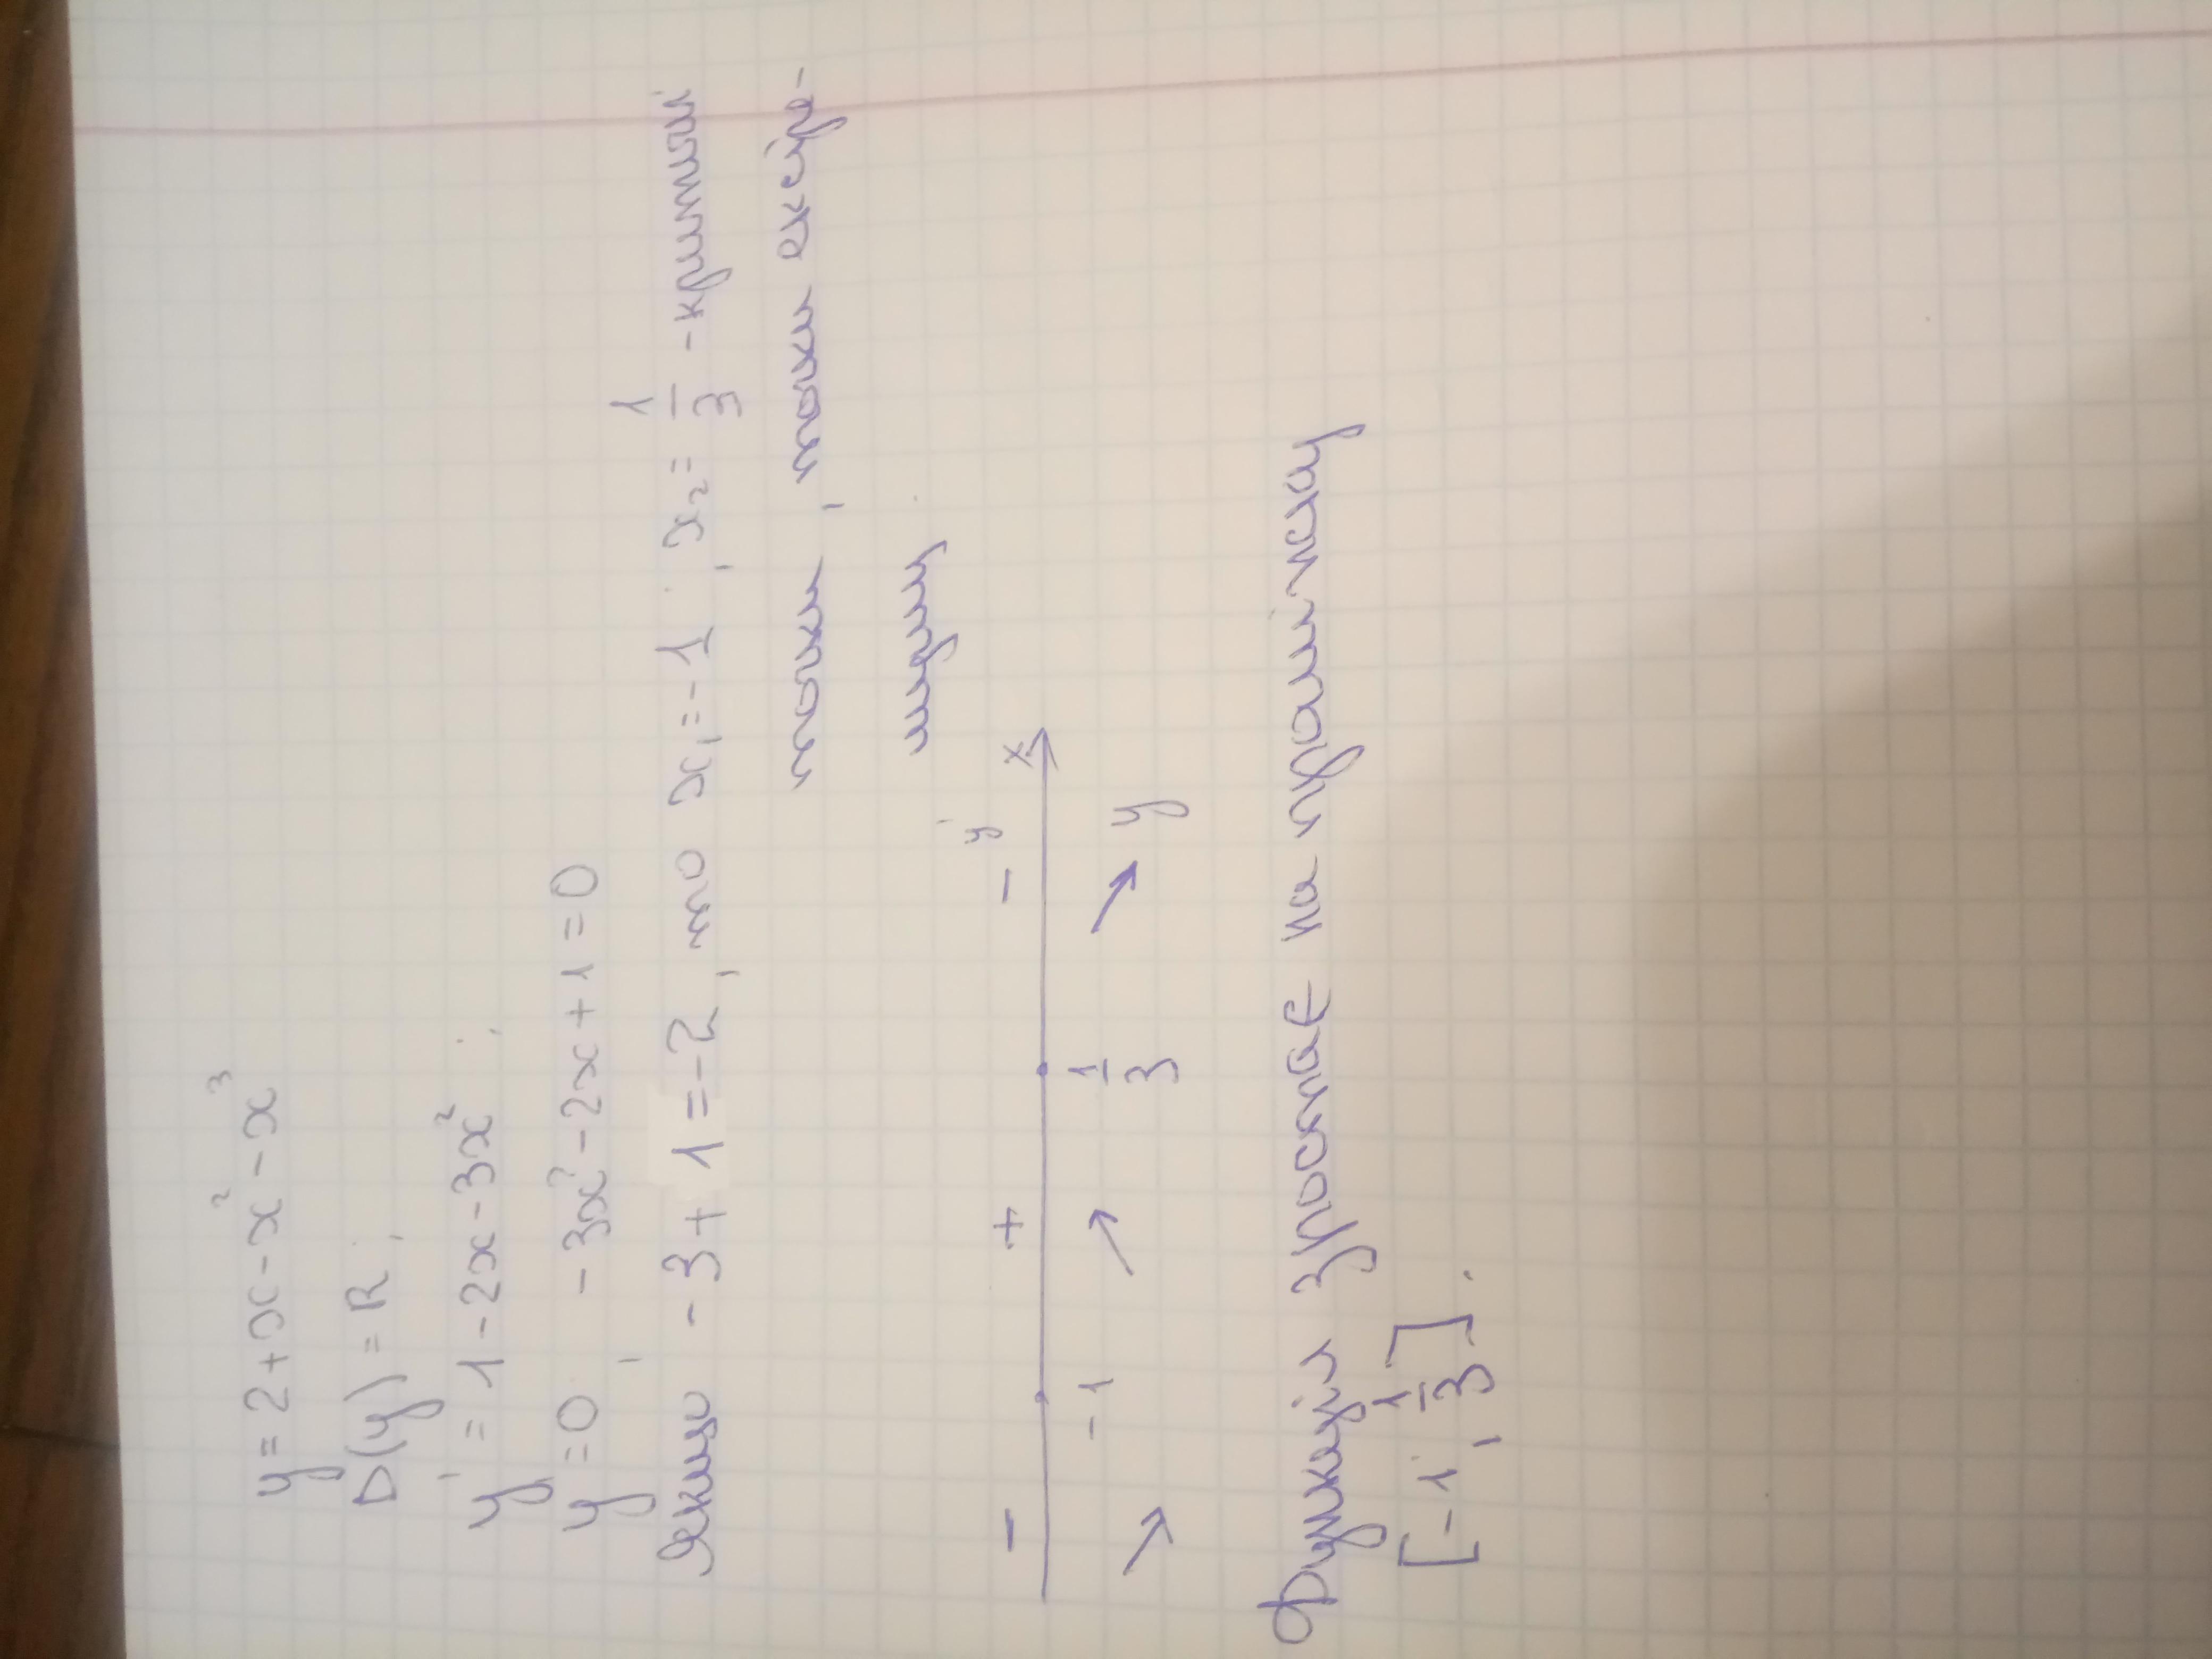 y = 2 + x - x² - x³
D(y) = R,
y' = 1 - 2x - 3x²;
y' = 0, -3x² - 2x + 1 = 0
Якщо -3 + 1 = -2, то x₁ = -1, x₂ = 1/3 - критичні
точки, точки екстре-
муму
- + - y' x
-1 1/3 y
Функція зростає на проміжку
[-1, 1/3].